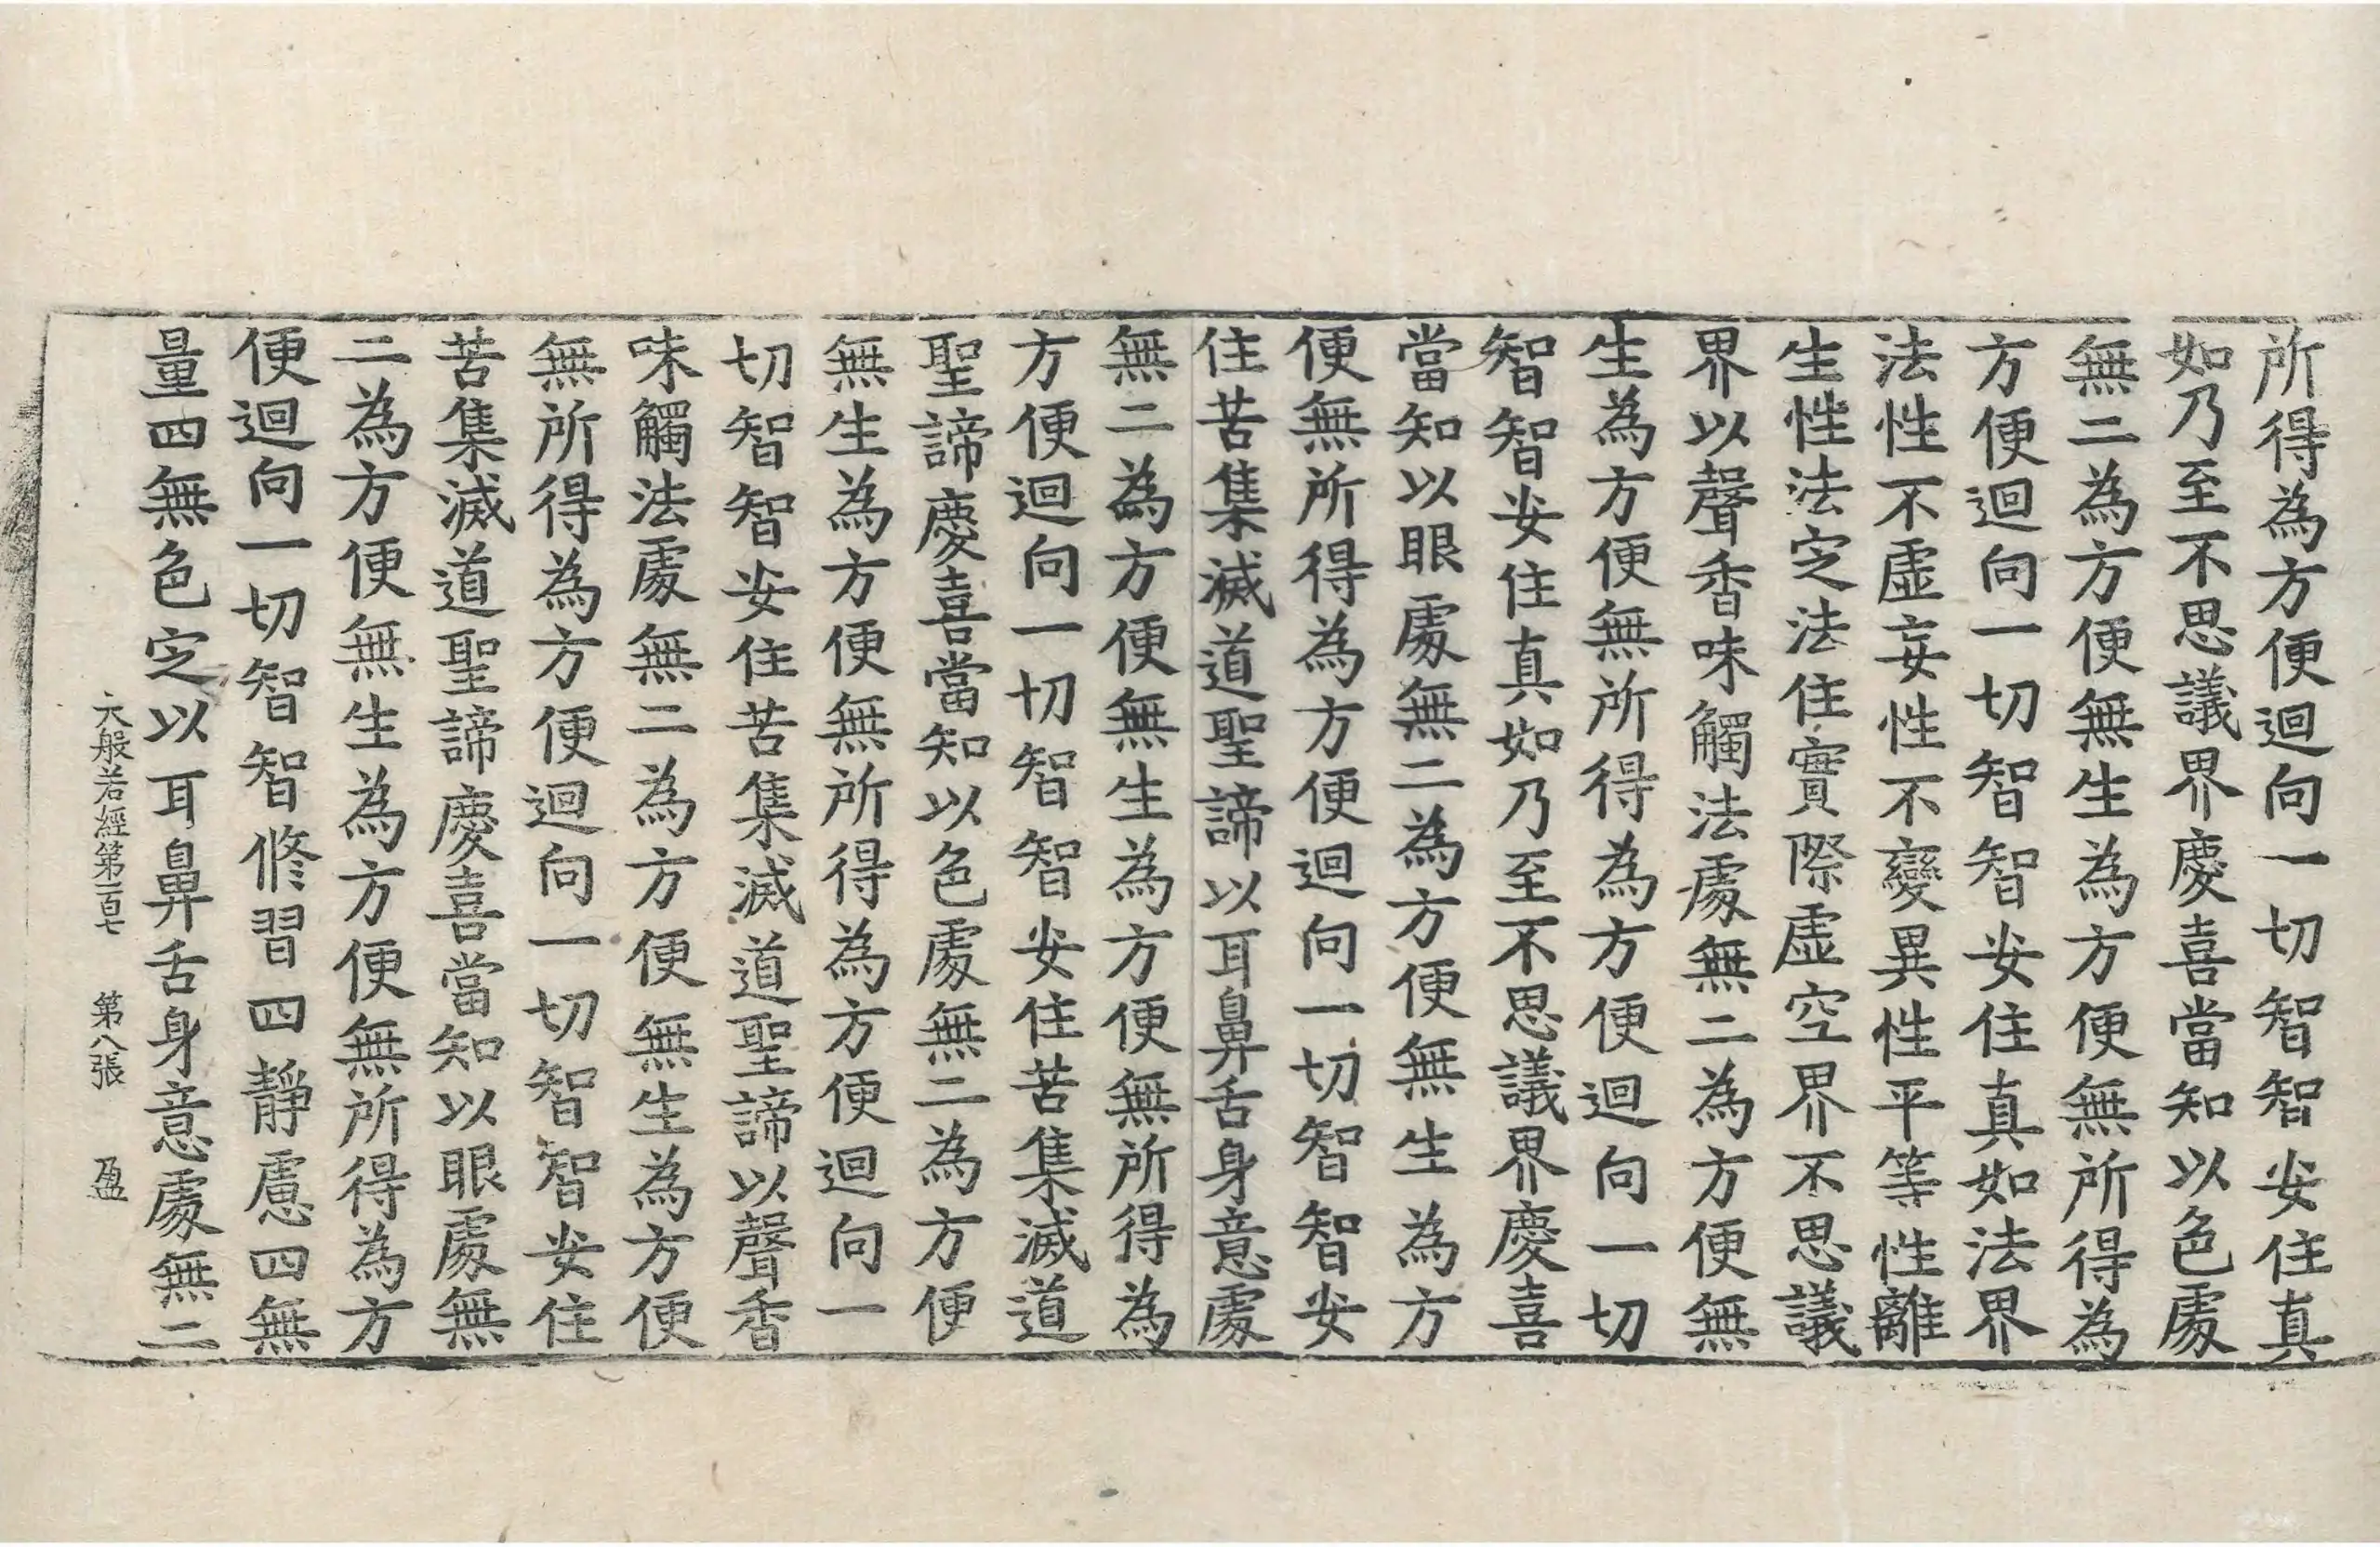 所得為方便迴向一切智智安住真
如乃至不思議界慶喜當知以色處
無二為方便無生為方便無所得為
方便迴向一切智智安住真如法界
法性不虛妄性不變異性平等性離
生性法定法住實際虛空界不思議
界以聲香味觸法處無二為方便無
生為方便無所得為方便迴向一切
智智安住真如乃至不思議界慶喜
當知以眼處無二為方便無生為方
便無所得為方便迴向一切智智安
住苦集滅道聖諦以耳鼻舌身意處
無二為方便無生為方便無所得為
方便迴向一切智智安住苦集滅道
聖諦慶喜當知以色處無二為方便
無生為方便無所得為方便迴向一
切智智安住苦集滅道聖諦以聲香
味觸法處無二為方便無生為方便
無所得為方便迴向一切智智安住
苦集滅道聖諦慶喜當知以眼處無
二為方便無生為方便無所得為方
便迴向一切智智修習四靜慮四無
量四無色定以耳鼻舌身意處無二
大般若經第一百七 第八張 盈